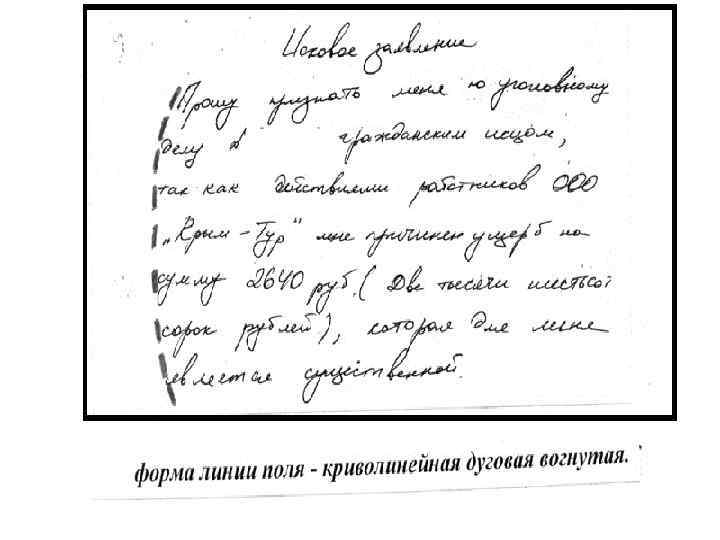 Исковое заявление
Прошу признать меня по уголовному
делу № гражданским исцом,
так как действиями работников ООО
„Крым-Тур" мне причинен ущерб на
сумму 2640 руб. (Две тысячи шестьсот
сорок рублей), которая для меня
евляется существенной.
форма линии поля - криволинейная дуговая вогнутая.